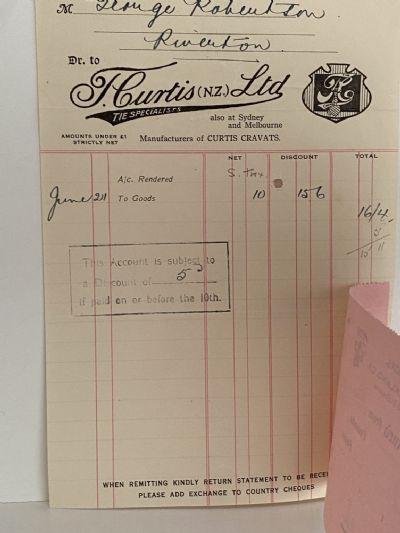 M George Robertson
Riverton.
Dr. to
T. Curtis (N.Z.) Ltd
TIE SPECIALISTS
also at Sydney
and Melbourne
AMOUNTS UNDER £1
STRICTLY NET
Manufacturers of CURTIS CRAVATS.
NET DISCOUNT TOTAL
A/c. Rendered S. Tax
June 21 To Goods 10 15 6
16/4
5
15 11
This Account is subject to
a Discount of 5d
if paid on or before the 10th.
WHEN REMITTING KINDLY RETURN STATEMENT TO BE RECEI
PLEASE ADD EXCHANGE TO COUNTRY CHEQUES